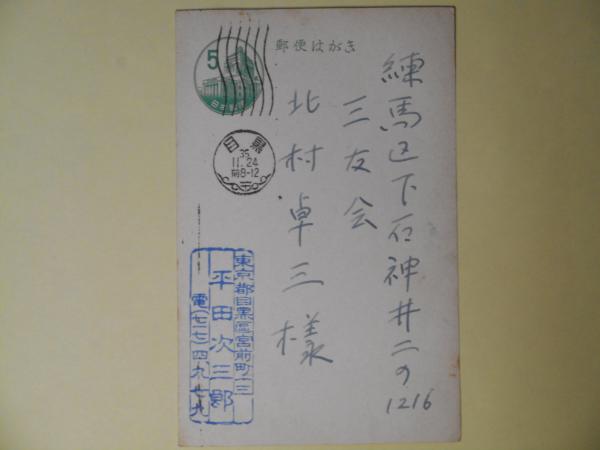 郵便はがき
5
日本郵便
目黒
35.
11.24
前8-12
練馬区下石神井二の
1216
三友会
北村卓三様
東京都目黒區宮前町一三
平田次三郎
電(七一七)四九七九